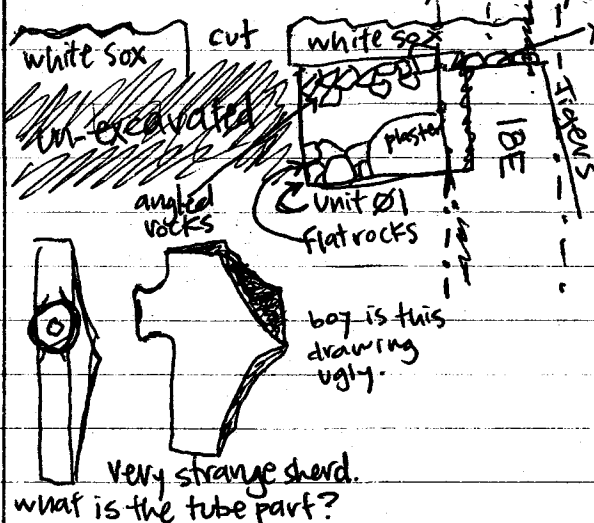 white sox
cut
white sox
un-excavated
plaster
IBE
Tigers
angled
rocks
unit Ø1
flat rocks
boy is this
drawing
ugly.
very strange sherd.
what is the tube part?